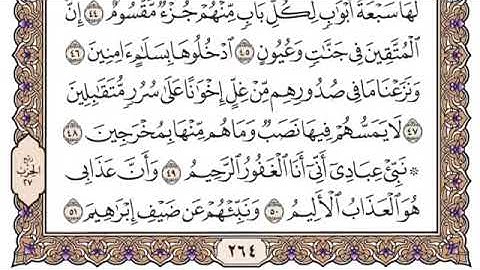 لَهَا سَبْعَةُ أَبْوَٰبٍ لِّكُلِّ بَابٍ مِّنْهُمْ جُزْءٌ مَّقْسُومٌ ٤٤ إِنَّ
ٱلْمُتَّقِينَ فِى جَنَّٰتٍ وَعُيُونٍ ٤٥ ٱدْخُلُوهَا بِسَلَٰمٍ ءَامِنِينَ ٤٦
وَنَزَعْنَا مَا فِى صُدُورِهِم مِّنْ غِلٍّ إِخْوَٰنًا عَلَىٰ سُرُرٍ مُّتَقَٰبِلِينَ
٤٧ لَا يَمَسُّهُمْ فِيهَا نَصَبٌ وَمَا هُم مِّنْهَا بِمُخْرَجِينَ ٤٨
۞ نَبِّئْ عِبَادِىٓ أَنِّىٓ أَنَا ٱلْغَفُورُ ٱلرَّحِيمُ ٤٩ وَأَنَّ عَذَابِى
هُوَ ٱلْعَذَابُ ٱلْأَلِيمُ ٥٠ وَنَبِّئْهُمْ عَن ضَيْفِ إِبْرَٰهِيمَ ٥١
ربع
الحزب
٢٧
٢٦٤